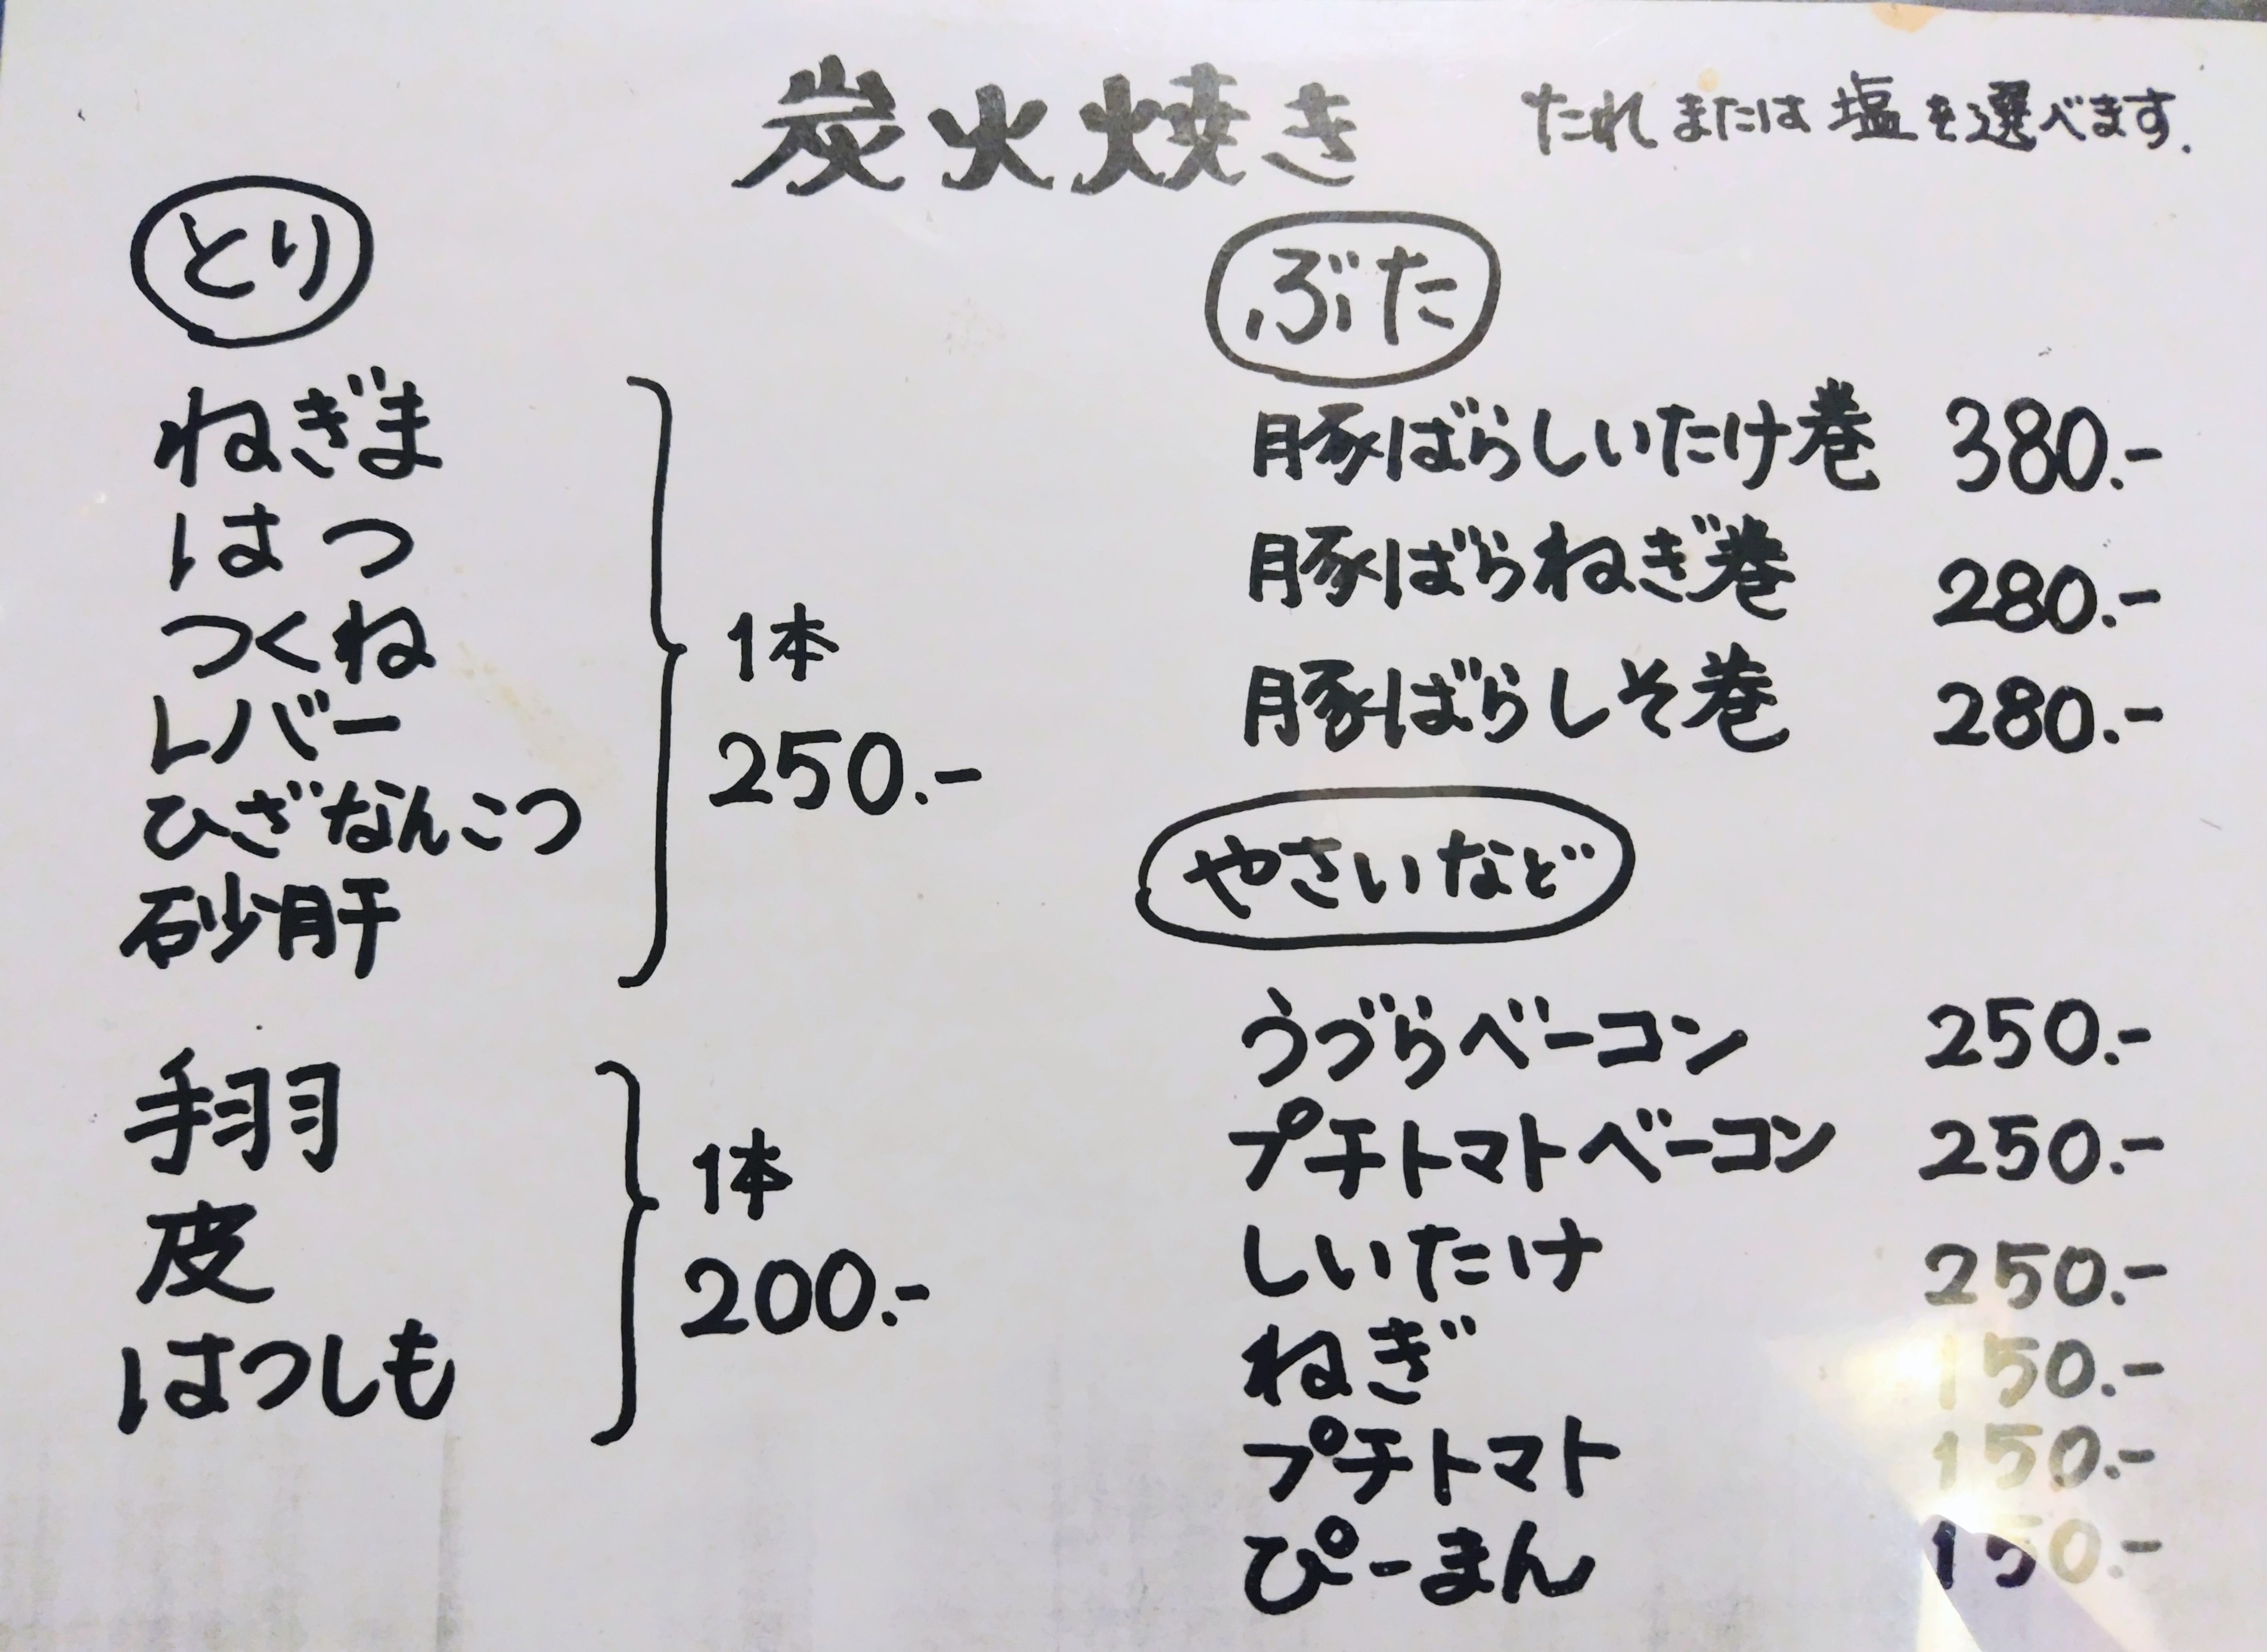 炭火焼き たれまたは塩を選べます.
とり
ねぎま
はつ
つくね
レバー
ひざなんこつ
砂肝
1本
250.-
手羽
皮
はつしも
1本
200.-
ぶた
豚ばらしいたけ巻 380.-
豚ばらねぎ巻 280.-
豚ばらしそ巻 280.-
やさいなど
うづらベーコン 250.-
プチトマトベーコン 250.-
しいたけ 250.-
ねぎ 150.-
プチトマト 150.-
ぴーまん 150.-